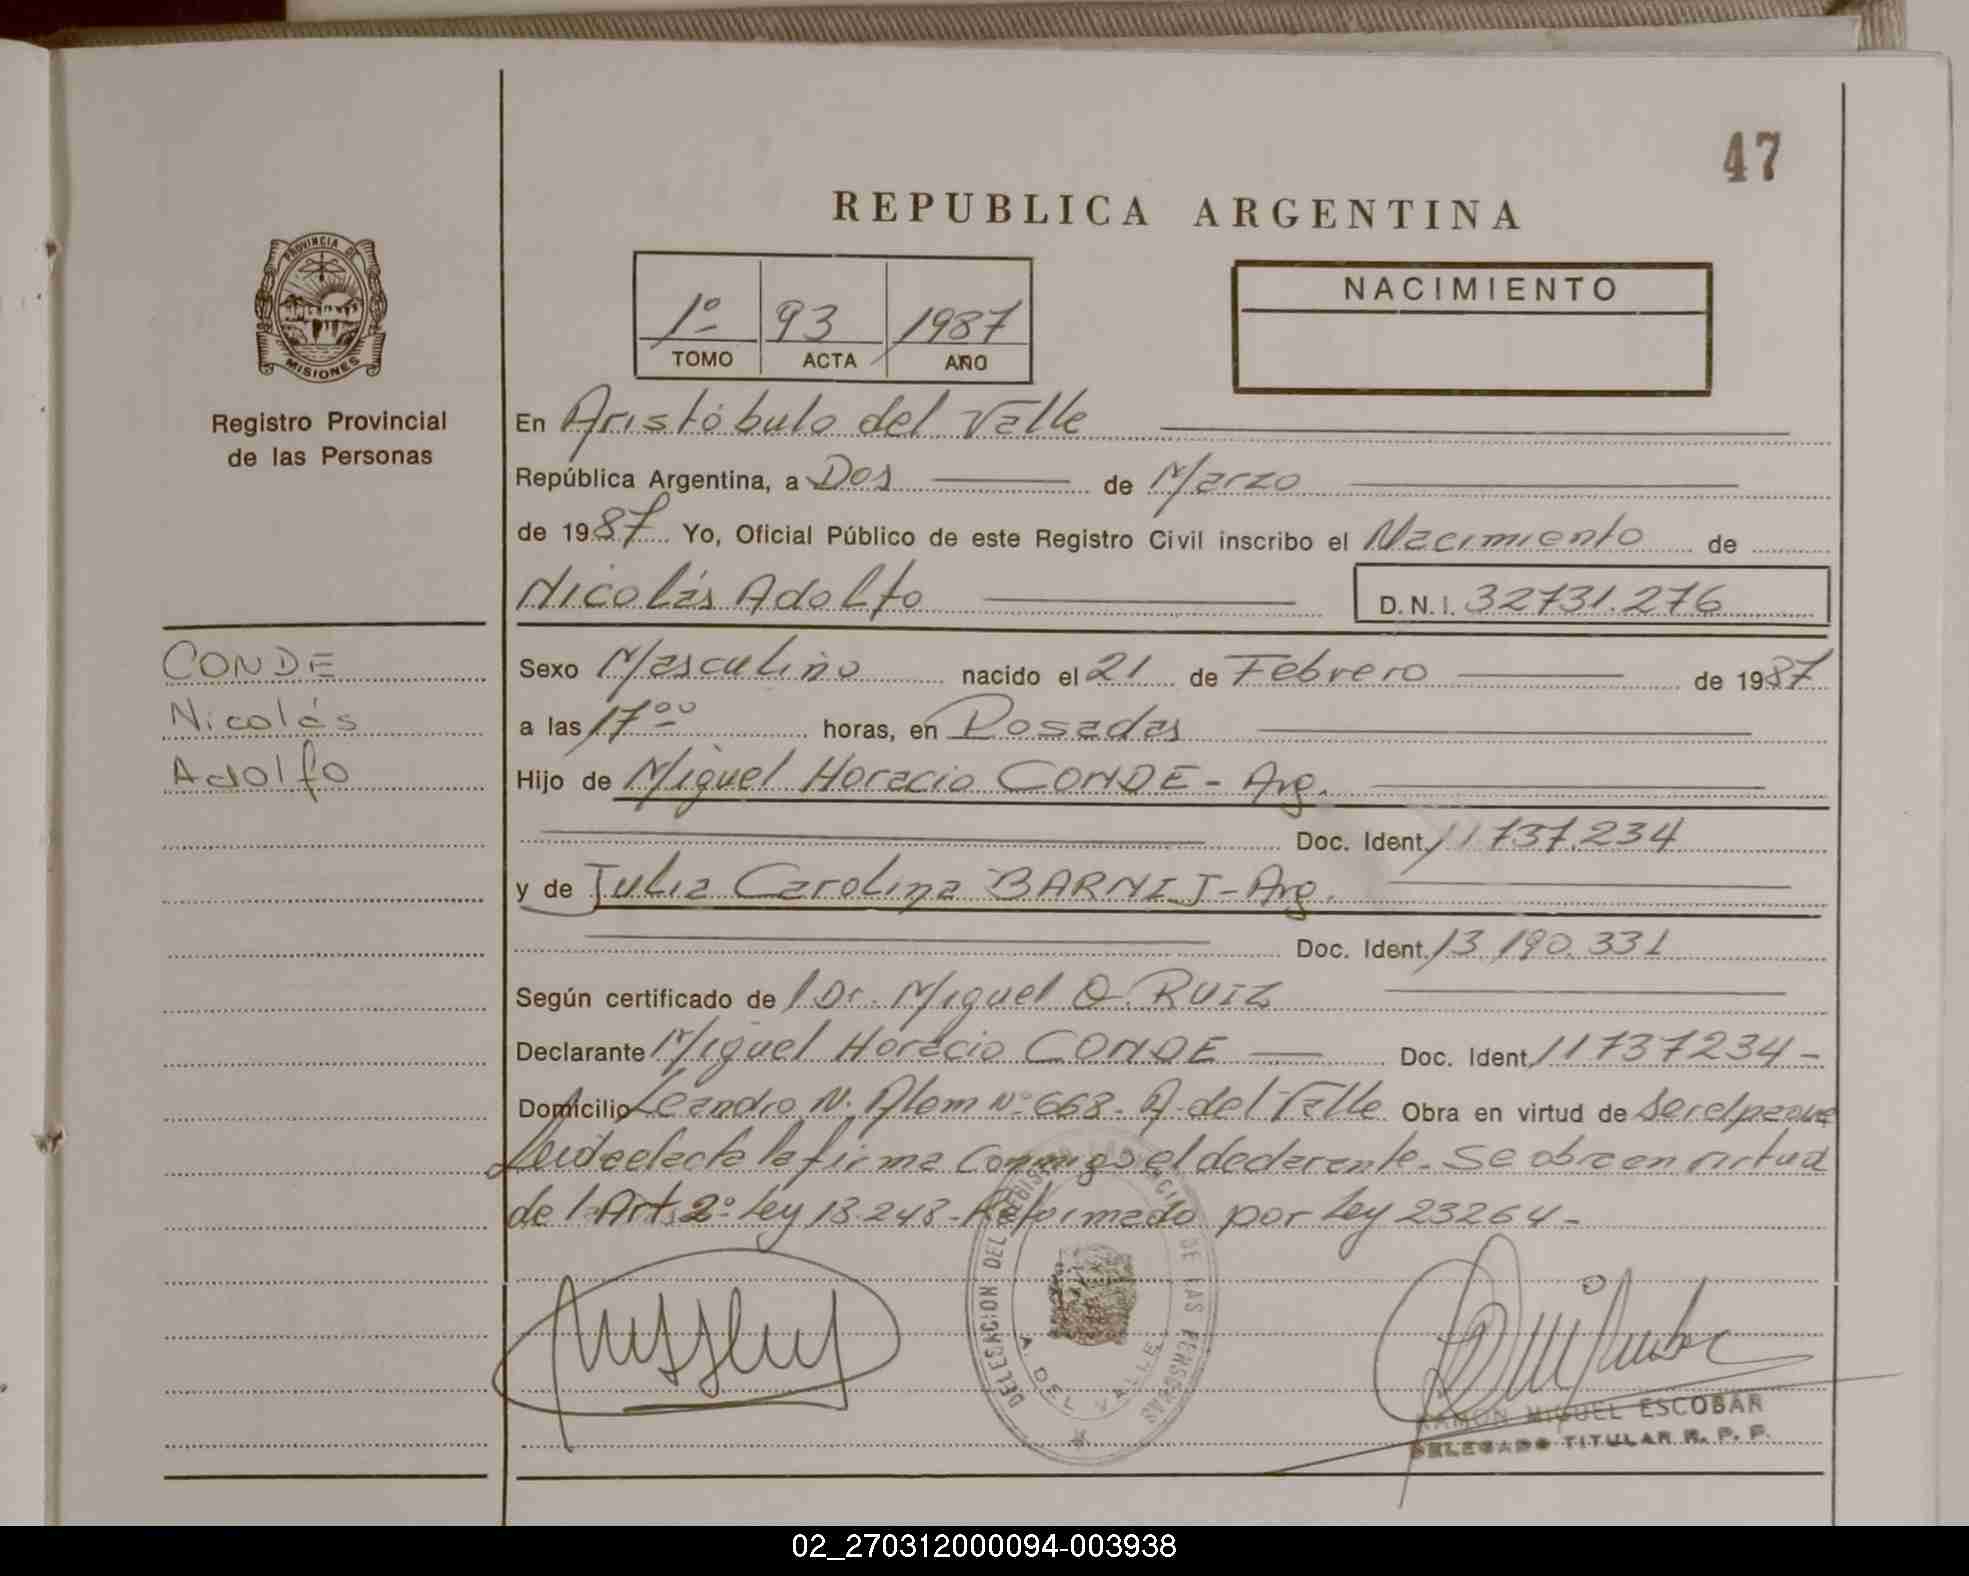 47
REPUBLICA ARGENTINA
PROVINCIA DE
MISIONES
Registro Provincial
de las Personas
1º 93 1987
TOMO ACTA AÑO
NACIMIENTO
En Aristóbulo del Valle
República Argentina, a Dos de Marzo
de 1987 Yo, Oficial Público de este Registro Civil inscribo el Nacimiento de
Nicolás Adolfo D.N.I. 32731.276
CONDE
Nicolás
Adolfo
Sexo Masculino nacido el 21 de Febrero de 1987
a las 17ºº horas, en Posadas
Hijo de Miguel Horacio CONDE - Arg.
Doc. Ident. 11737.234
y de Julia Carolina - Arg.
Doc. Ident. 13.190.331
Según certificado de l Dr. Miguel O. RUIZ
Declarante Miguel Horacio CONDE Doc. Ident. 11737234-
Domicilio Leandro N. Alem Nº 668- A. del Valle Obra en virtud de ser el padre
Leida el acta la firma conmigo el declarante. Se obra en virtud
de l Art. 2º Ley 18.248- Reformado por Ley 23264-
DELEGACION DEL REGISTRO PROVINCIAL DE LAS PERSONAS
A. DEL VALLE
RAMON MIGUEL ESCOBAR
DELEGADO TITULAR R. P. P.
02_270312000094-003938